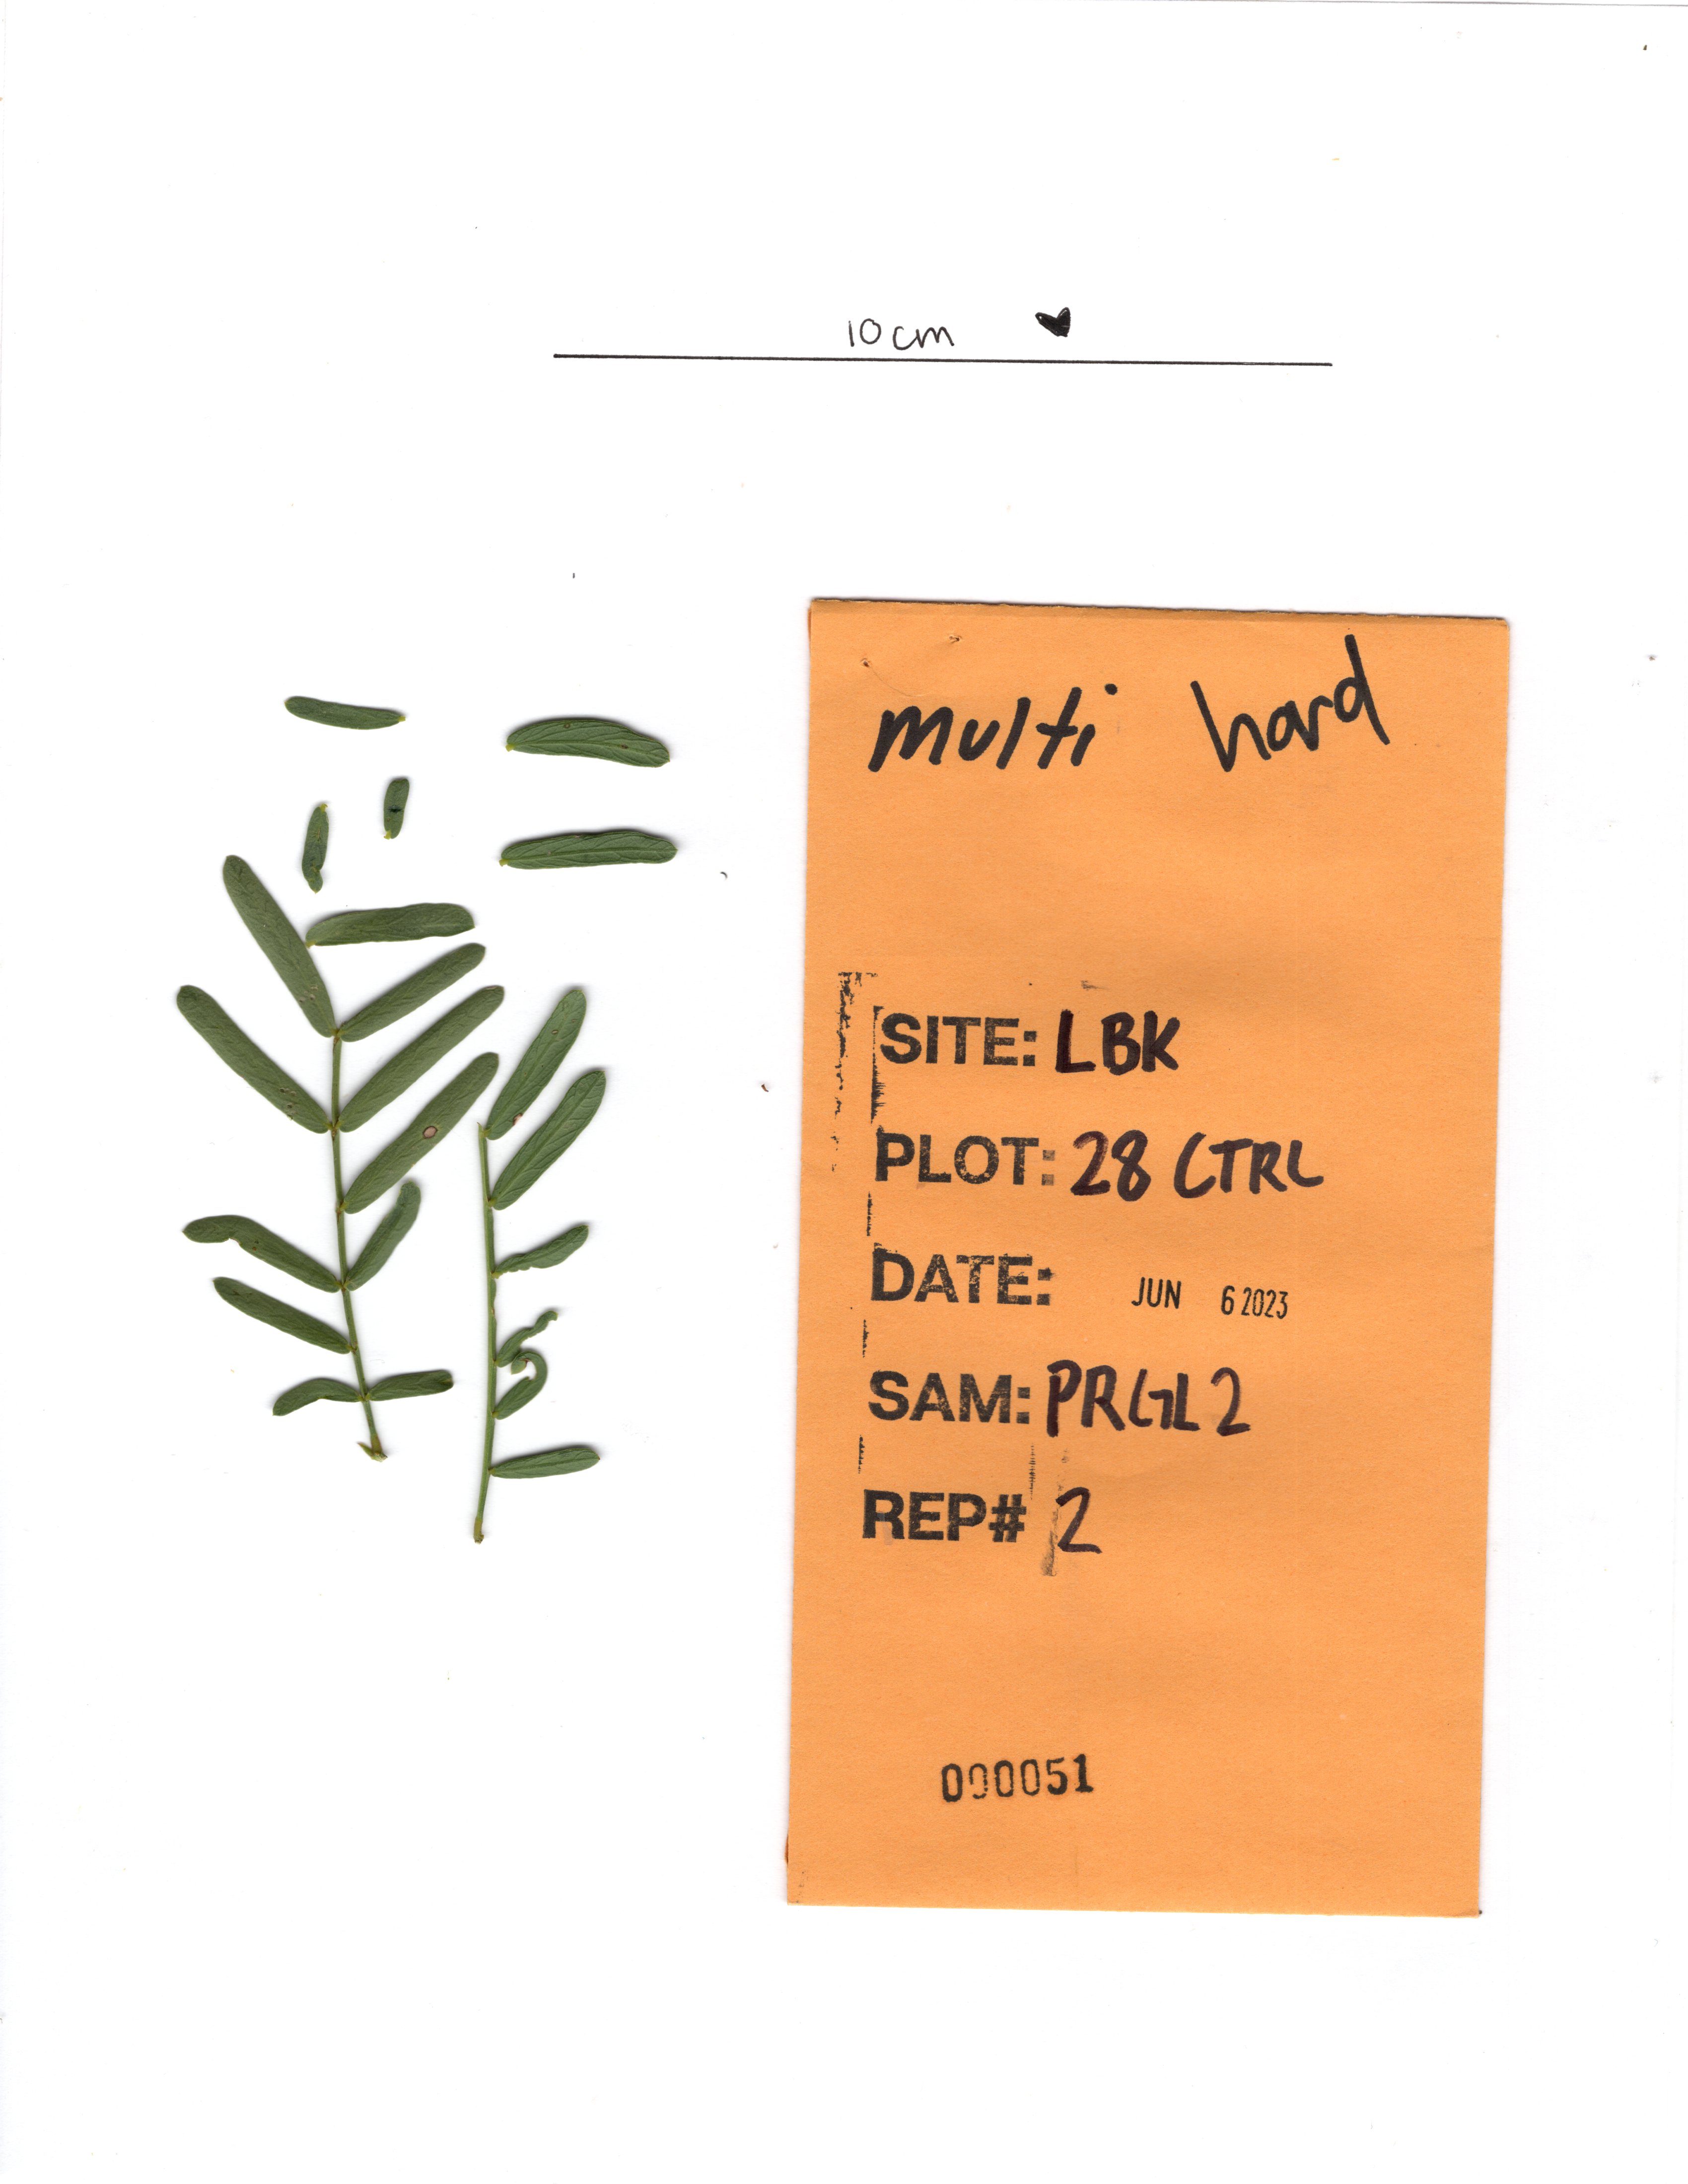 10cm
multi hard
SITE: LBK
PLOT: 28 CTRL
DATE: JUN 6 2023
SAM: PRGL2
REP# 2
000051